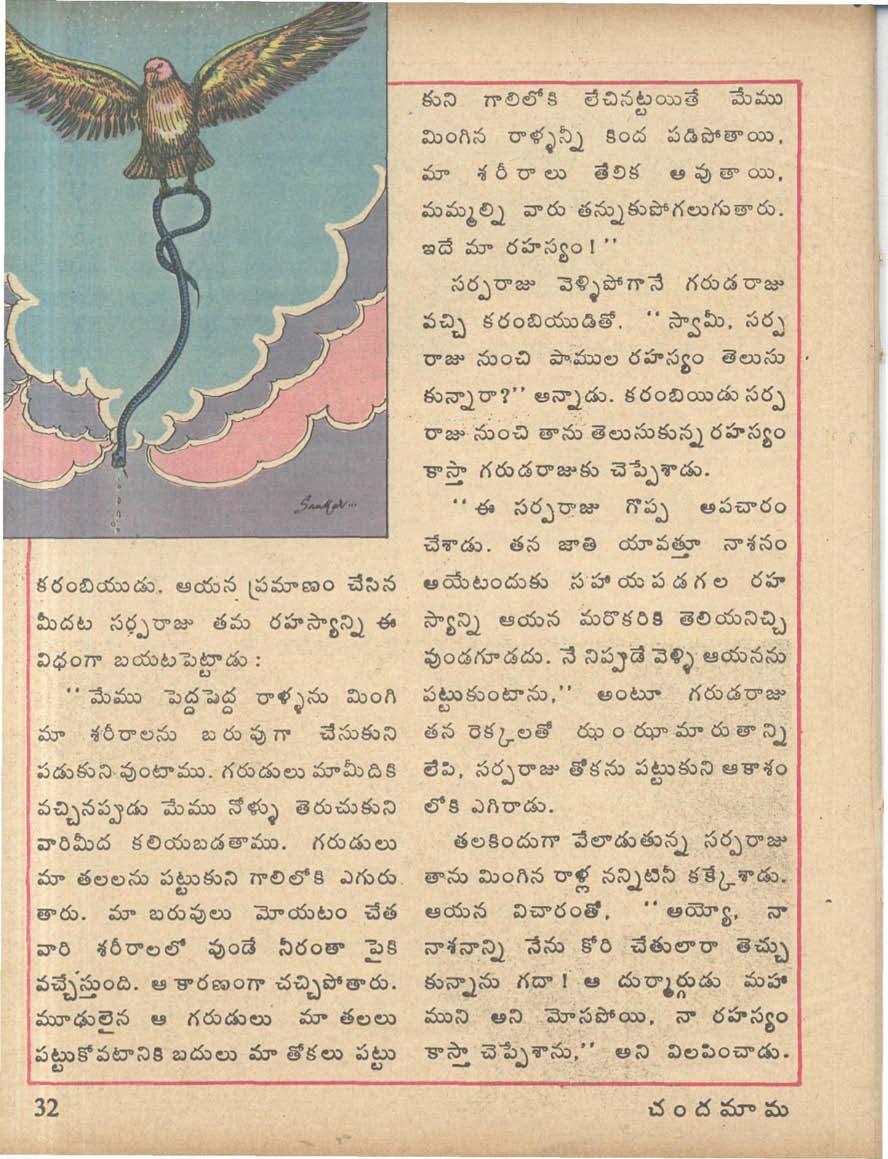 Sankar...
కరంబియుడు. ఆయన ప్రమాణం చేసిన
మీదట సర్పరాజు తమ రహస్యాన్ని ఈ
విధంగా బయటపెట్టాడు :
‘‘మేము పెద్దపెద్ద రాళ్ళను మింగి
మా శరీరాలను బరువుగా చేసుకుని
పడుకుని వుంటాము. గరుడులు మామీదికి
వచ్చినప్పుడు మేము నోళ్ళు తెరుచుకుని
వారిమీద కలియబడతాము. గరుడులు
మా తలలను పట్టుకుని గాలిలోకి ఎగురు
తారు. మా బరువులు మోయటం చేత
వారి శరీరాలలో వుండే నీరంతా పైకి
వచ్చేస్తుంది. ఆ కారణంగా చచ్చిపోతారు.
మూఢులైన ఆ గరుడులు మా తలలు
పట్టుకోవటానికి బదులు మా తోకలు పట్టు
కుని గాలిలోకి లేచినట్టయితే మేము
మింగిన రాళ్ళన్నీ కింద పడిపోతాయి,
మా శరీరాలు తేలిక అవుతాయి,
మమ్మల్ని వారు తన్నుకుపోగలుగుతారు.
ఇదే మా రహస్యం!’’
సర్పరాజు వెళ్ళిపోగానే గరుడరాజు
వచ్చి కరంబియుడితో. ‘‘స్వామీ, సర్ప
రాజు నుంచి పాముల రహస్యం తెలుసు
కున్నారా?’’ అన్నాడు. కరంబియిడు సర్ప
రాజు నుంచి తాను తెలుసుకున్న రహస్యం
కాస్తా గరుడరాజుకు చెప్పేశాడు.
‘‘ఈ సర్పరాజు గొప్ప అపచారం
చేశాడు. తన జాతి యావత్తూ నాశనం
అయేటందుకు సహాయపడగల రహ
స్యాన్ని ఆయన మరొకరికి తెలియనిచ్చి
వుండగూడదు. నేనిప్పుడే వెళ్ళి ఆయనను
పట్టుకుంటాను,’’ అంటూ గరుడరాజు
తన రెక్కలతో ఝంఝామారుతాన్ని
లేపి, సర్పరాజు తోకను పట్టుకుని ఆకాశం
లోకి ఎగిరాడు.
తలకిందుగా వేలాడుతున్న సర్పరాజు
తాను మింగిన రాళ్ల నన్నిటినీ కక్కేశాడు.
ఆయన విచారంతో, ‘‘అయ్యో, నా
నాశనాన్ని నేను కోరి చేతులారా తెచ్చు
కున్నాను గదా! ఆ దుర్మార్గుడు మహా
ముని అని మోసపోయి, నా రహస్యం
కాస్తా చెప్పేశాను,’’ అని విలపించాడు.
32
చందమామ